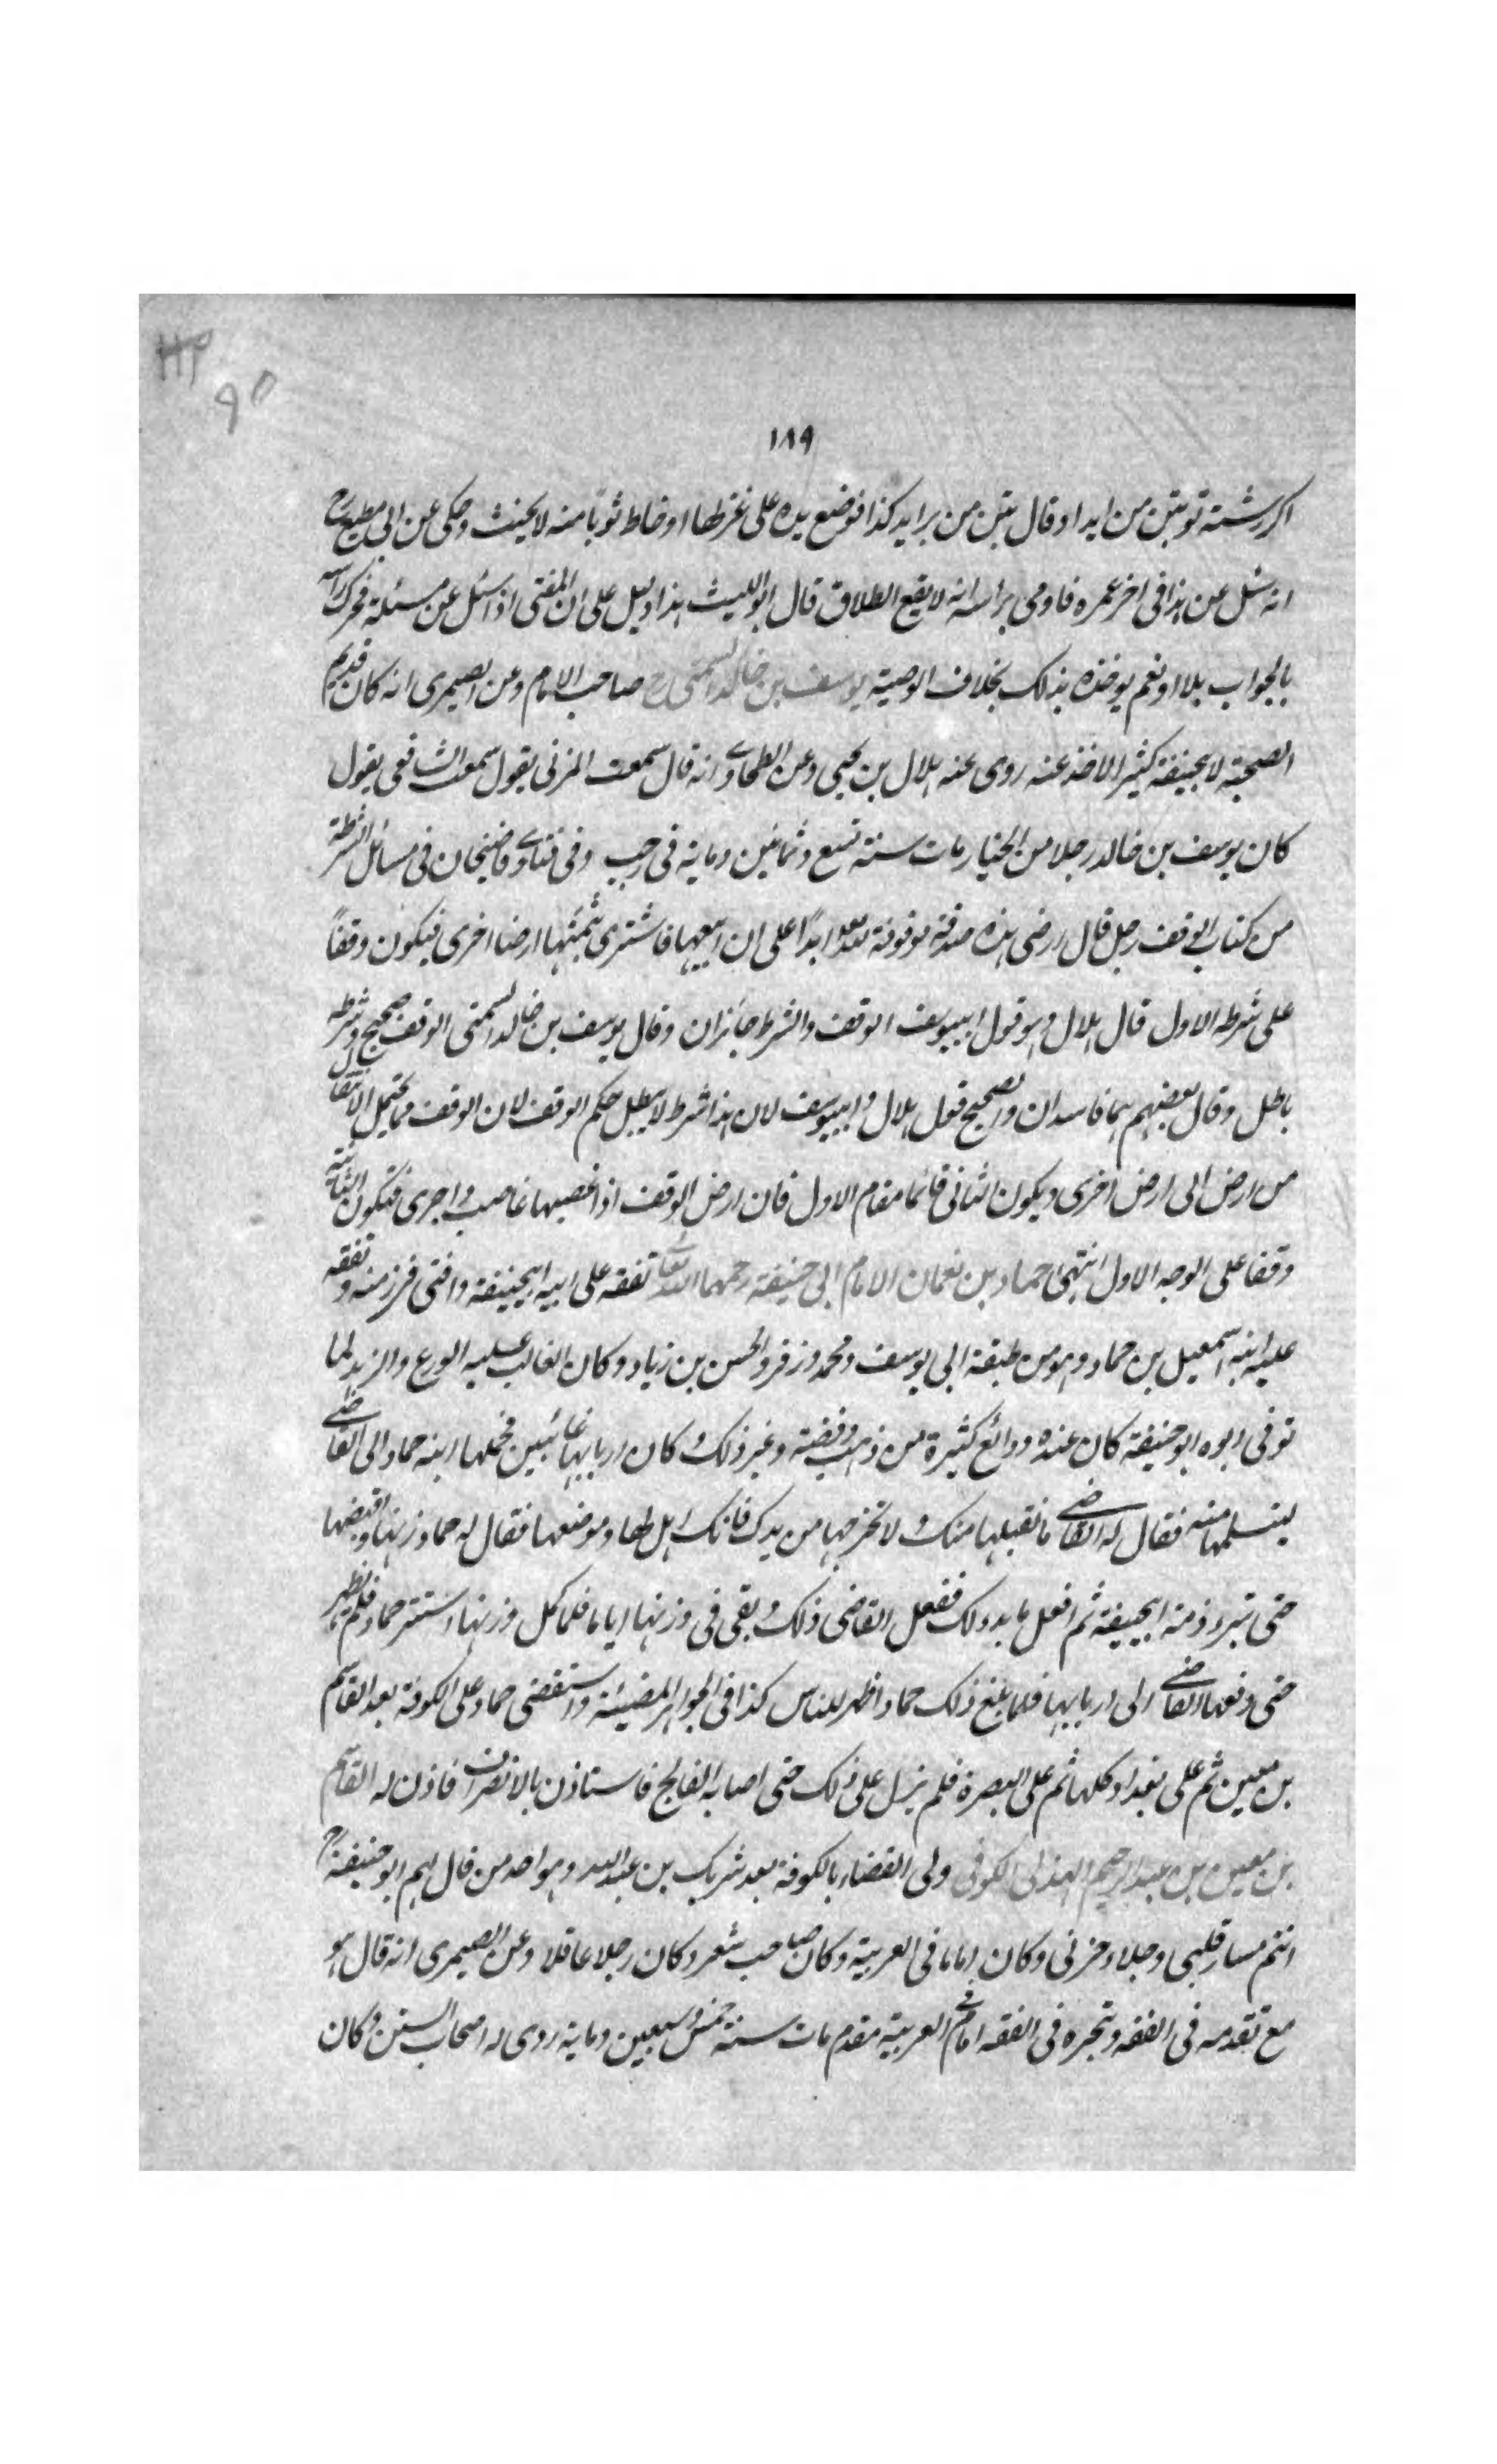 ١٨٩
اكر رشته تو بتن من ايد او قال بتن من برايد كذا فوضع يده على غزلها او خاط ثوبا منه لا يحنث وحكى عن ابى مطيع رح
انه سئل عن هذا فى اخر عمره فاومى براسه انه لا يقع الطلاق قال ابو الليث هذا دليل على ان المفتى اذا سئل عن مسئلة فحرك راسه
بالجواب بلا او نعم يوخذه بذلك بخلاف الوصية يوسف بن خالد السمتى رح صاحب الامام وعن الصيمرى انه كان قديم
الصحبة لابيحنيفة كثير الاخذ عنه روى عنه هلال بن يحيى وعن الطحاوى انه قال سمعت المزنى يقول سمعت الشافعى يقول
كان يوسف بن خالد رجلا من الخيار مات سنة تسع وثمانين وماية فى رجب وفى فتاوى قاضيخان فى مسائل الشرط
من كتاب الوقف رجل قال ارضى هذه صدقة موقوفة لله تعالى ابدًا على ان ابيعها فاشترى بثمنها ارضا اخرى فيكون وقفاً
على شرطه الاول قال هلال وهو قول ابييوسف الوقف والشرط جائزان وقال يوسف بن خالد السمتى الوقف صحيح وشرطه
باطل وقال بعضهم هما فاسدان والصحيح قول هلال وابييوسف لان هذا شرط لا يبطل حكم الوقف لان الوقف مما يحتمل الانتقال
من ارض الى ارض اخرى ويكون الثانى قائما مقام الاول فان ارض الوقف اذا غصبها غاصب واجرى فتكون الثانية
وقفا على الوجه الاول انتهى حماد بن نعمان الامام ابى حنيفة رحمهما الله تعالى تفقه على ابيه ابيحنيفة وافتى فى زمنه وتفقه
عليه ابنه اسمعيل بن حماد وهو من طبقة ابى يوسف ومحمد وزفر والحسن بن زياد وكان الغالب عليه الورع والزهد لما
توفى ابوه ابو حنيفة كان عنده ودائع كثيرة من ذهب وفضة وغير ذلك وكان اربابها غائبين فحملها ابنه حماد الى القاضى
ليتسلمها منه فقال له القاضى ما نقبلها منك ولا تخرجها من يدك فانك اهل لها وموضعها فقال له حماد زنها واقبضها
حتى تبرء ذمة ابيحنيفة ثم افعل ما بدا لك ففعل القاضى ذلك وبقى فى وزنها اياما فلما كمل وزنها استتر حماد فلم يظهر
حتى دفعها القاضى الى اربابها فلما بلغ ذلك حماد اظهر للناس كذا فى الجواهر المضيئة واستقضى حماد على الكوفة بعد القاسم
بن معين ثم على بغداد كلها ثم على البصرة فلم يزل على ذلك حتى اصابه الفالج فاستاذن بالانصراف فاذن له القاسم
بن معين بن عبد الرحيم الهذلى الكوفى ولى القضاء بالكوفة بعد شريك بن عبد الله وهو احد من قال لهم ابو حنيفة رح
انتم مسار قلبى وجلاء حزنى وكان اماما فى العربية وكان صاحب شعر وكان رجلا عاقلا وعن الصيمرى انه قال هو
مع تقدمه فى الفقه وتبحره فى الفقه امام فى العربية مقدم مات سنة خمس وسبعين وماية روى له اصحاب السنن وكان